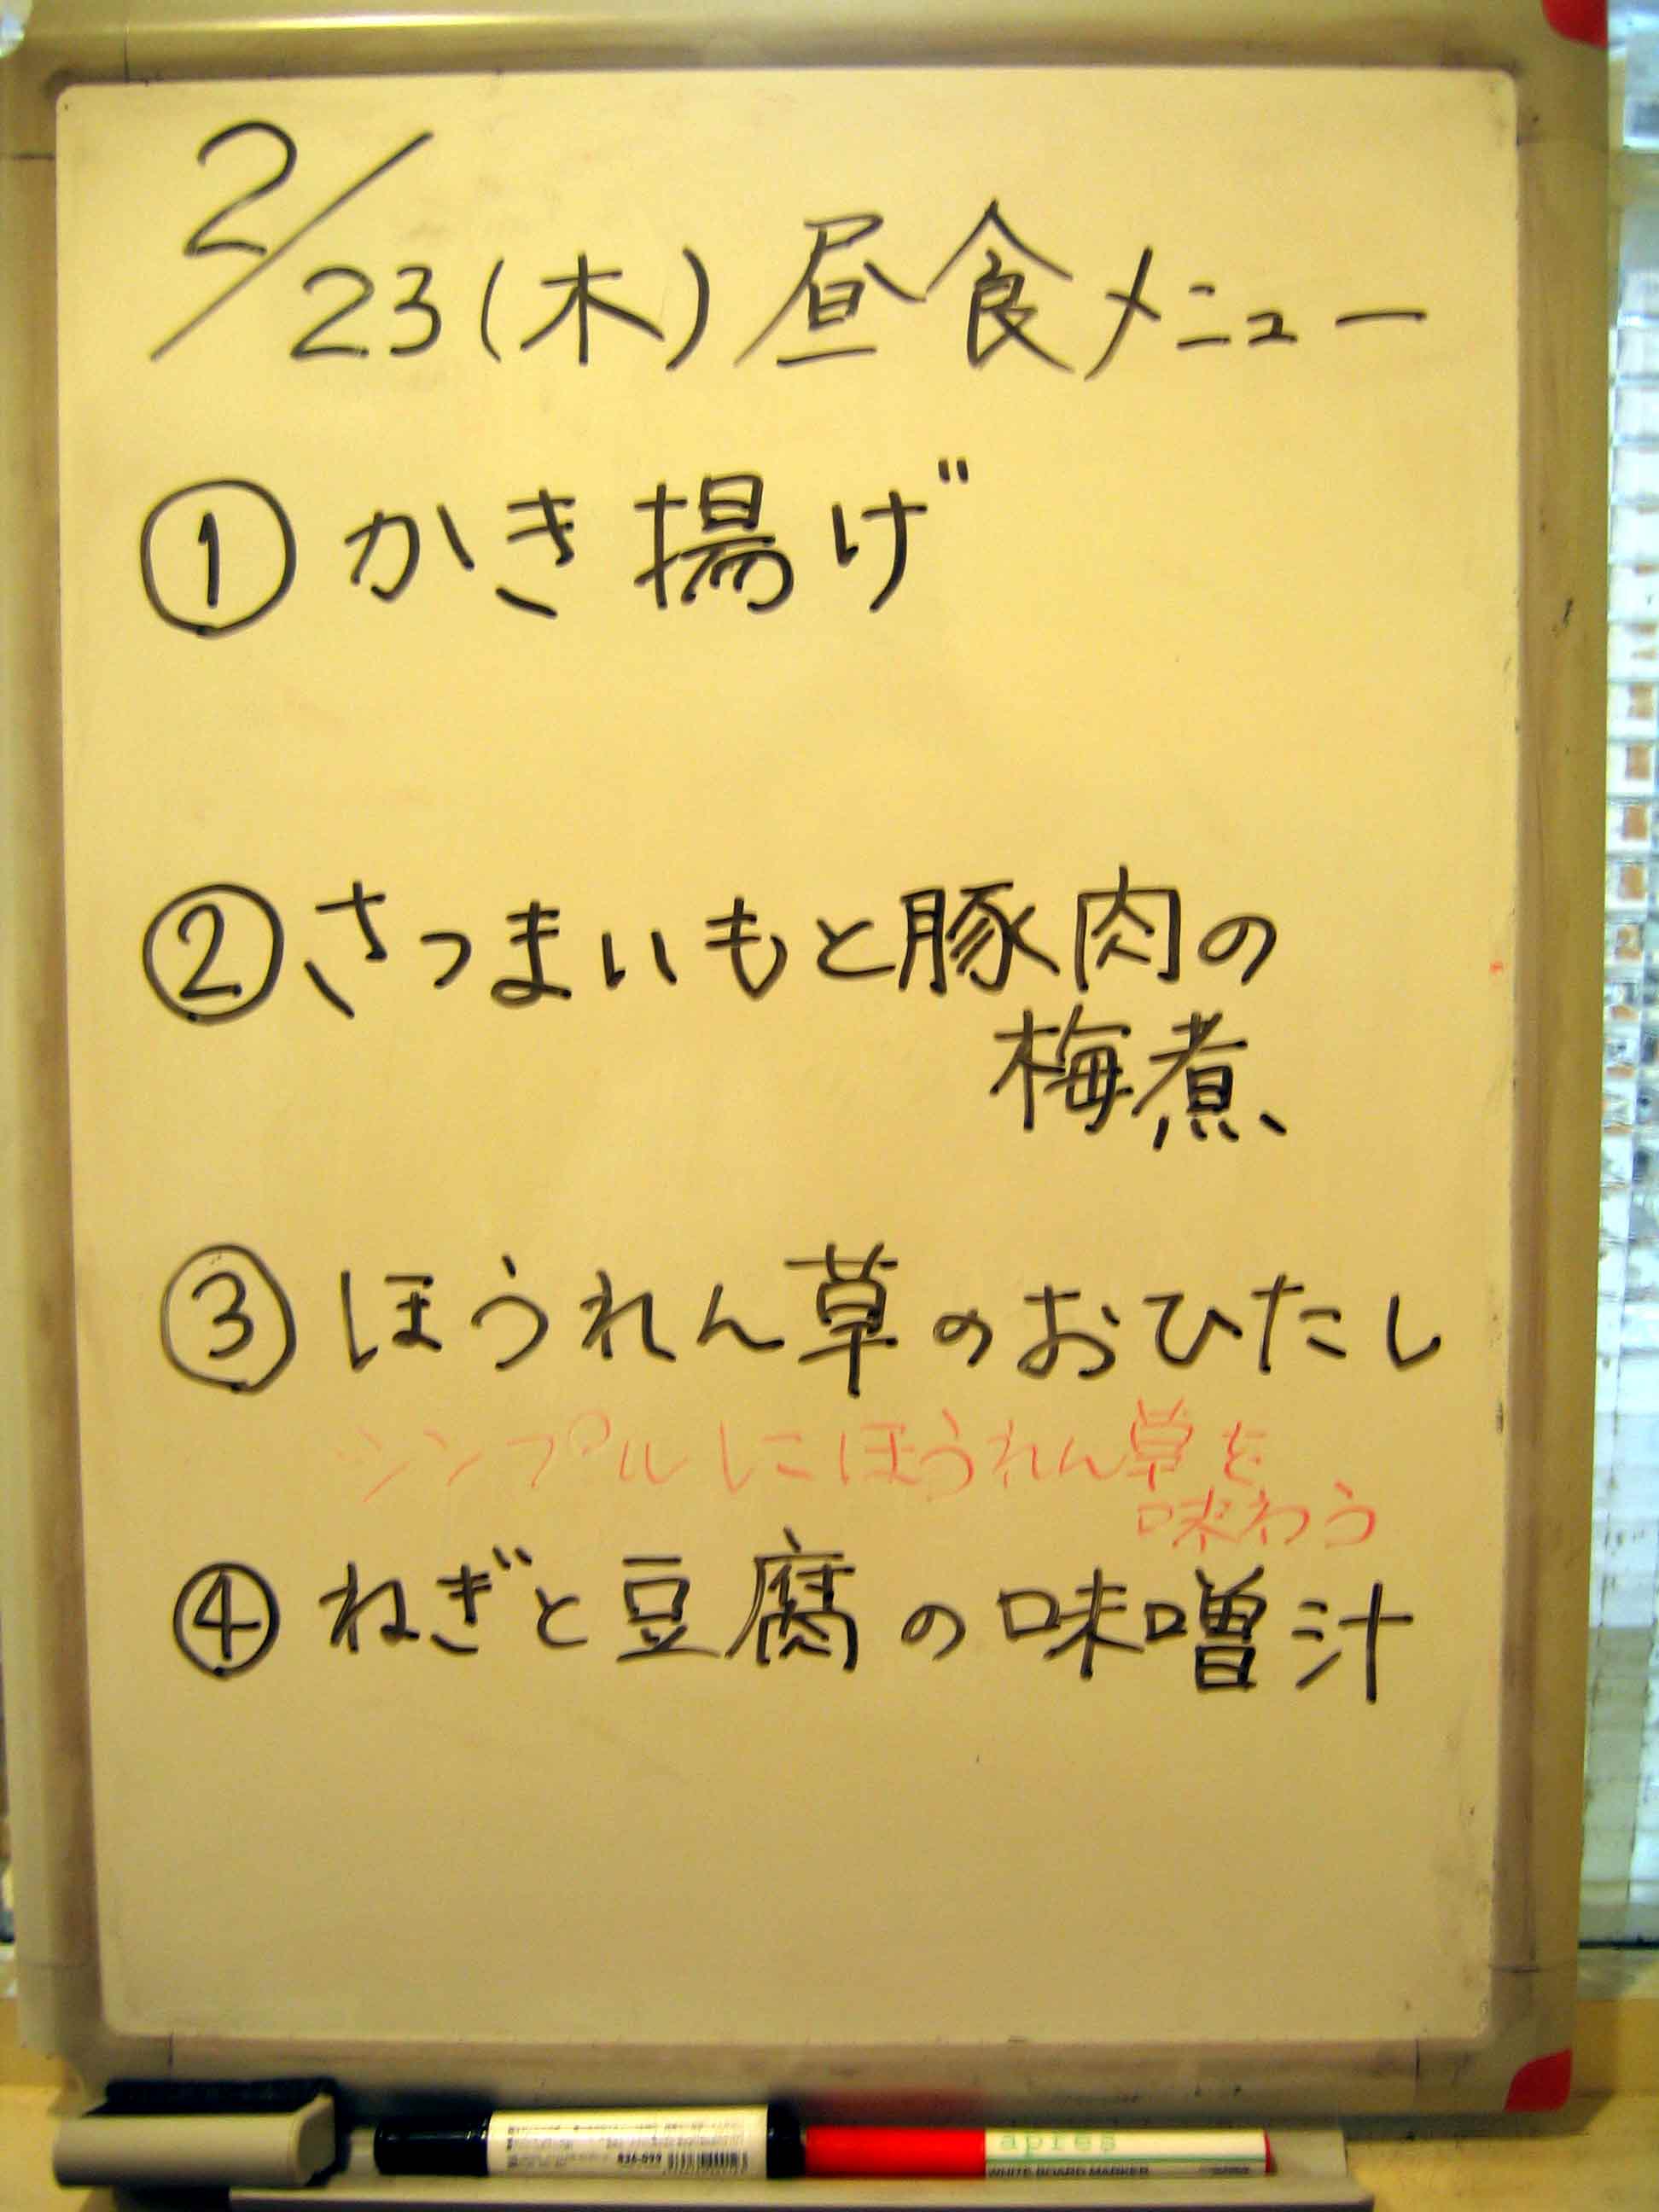 2/23(木)昼食メニュー
①かき揚げ
②さつまいもと豚肉の
梅煮
③ほうれん草のおひたし
シンプルにほうれん草を
味わう
④ねぎと豆腐の味噌汁
836-099
apres
WHITE BOARD MARKER